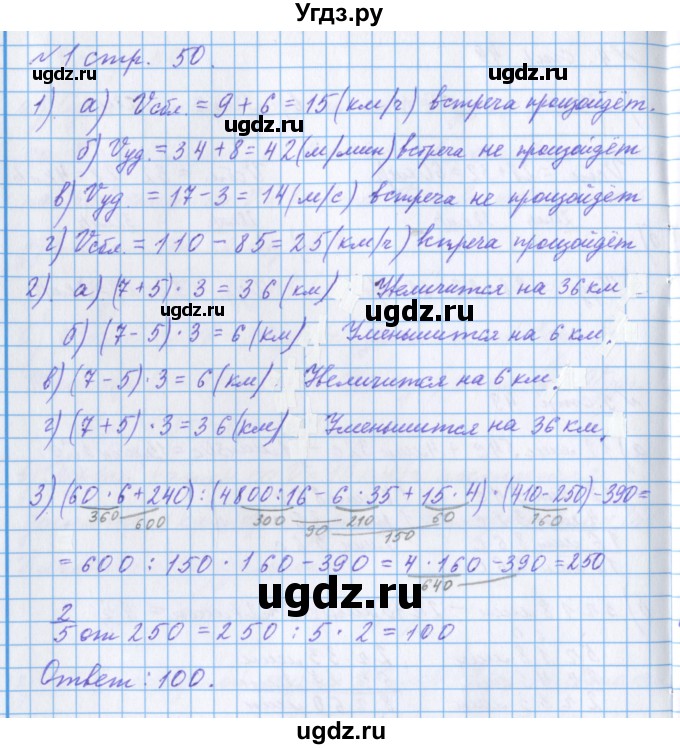 Угдз.ру
№1 стр. 50.
ugdz.ru ugdz.ru
1). а) Vсбл. = 9 + 6 = 15 (км/ч) встреча произойдёт.
ugdz.ru
б) Vуд. = 34 + 8 = 42 (м/мин) встреча не произойдёт
в) Vуд. = 17 - 3 = 14 (м/с) встреча не произойдёт
ugdz.ru
г) Vсбл. = 110 - 85 = 25 (км/ч) встреча произойдёт
2). а) (7 + 5) · 3 = 36 (км) Увеличится на 36 км
ugdz.ru
б) (7 - 5) · 3 = 6 (км) Уменьшится на 6 км.
в) (7 - 5) · 3 = 6 (км). Увеличится на 6 км.
г) (7 + 5) · 3 = 36 (км) Уменьшится на 36 км.
ugdz.ru ugdz.ru
3) (60 · 6 + 240) : (4800 : 16 - 6 · 35 + 15 · 4) · (410 - 250) - 390 =
360 600 300 90 210 150 60 160
= 600 : 150 · 160 - 390 = 4 · 160 - 390 = 250
640
ugdz.ru
2/5 от 250 = 250 : 5 · 2 = 100
Ответ: 100.
ugdz.ru ugdz.ru